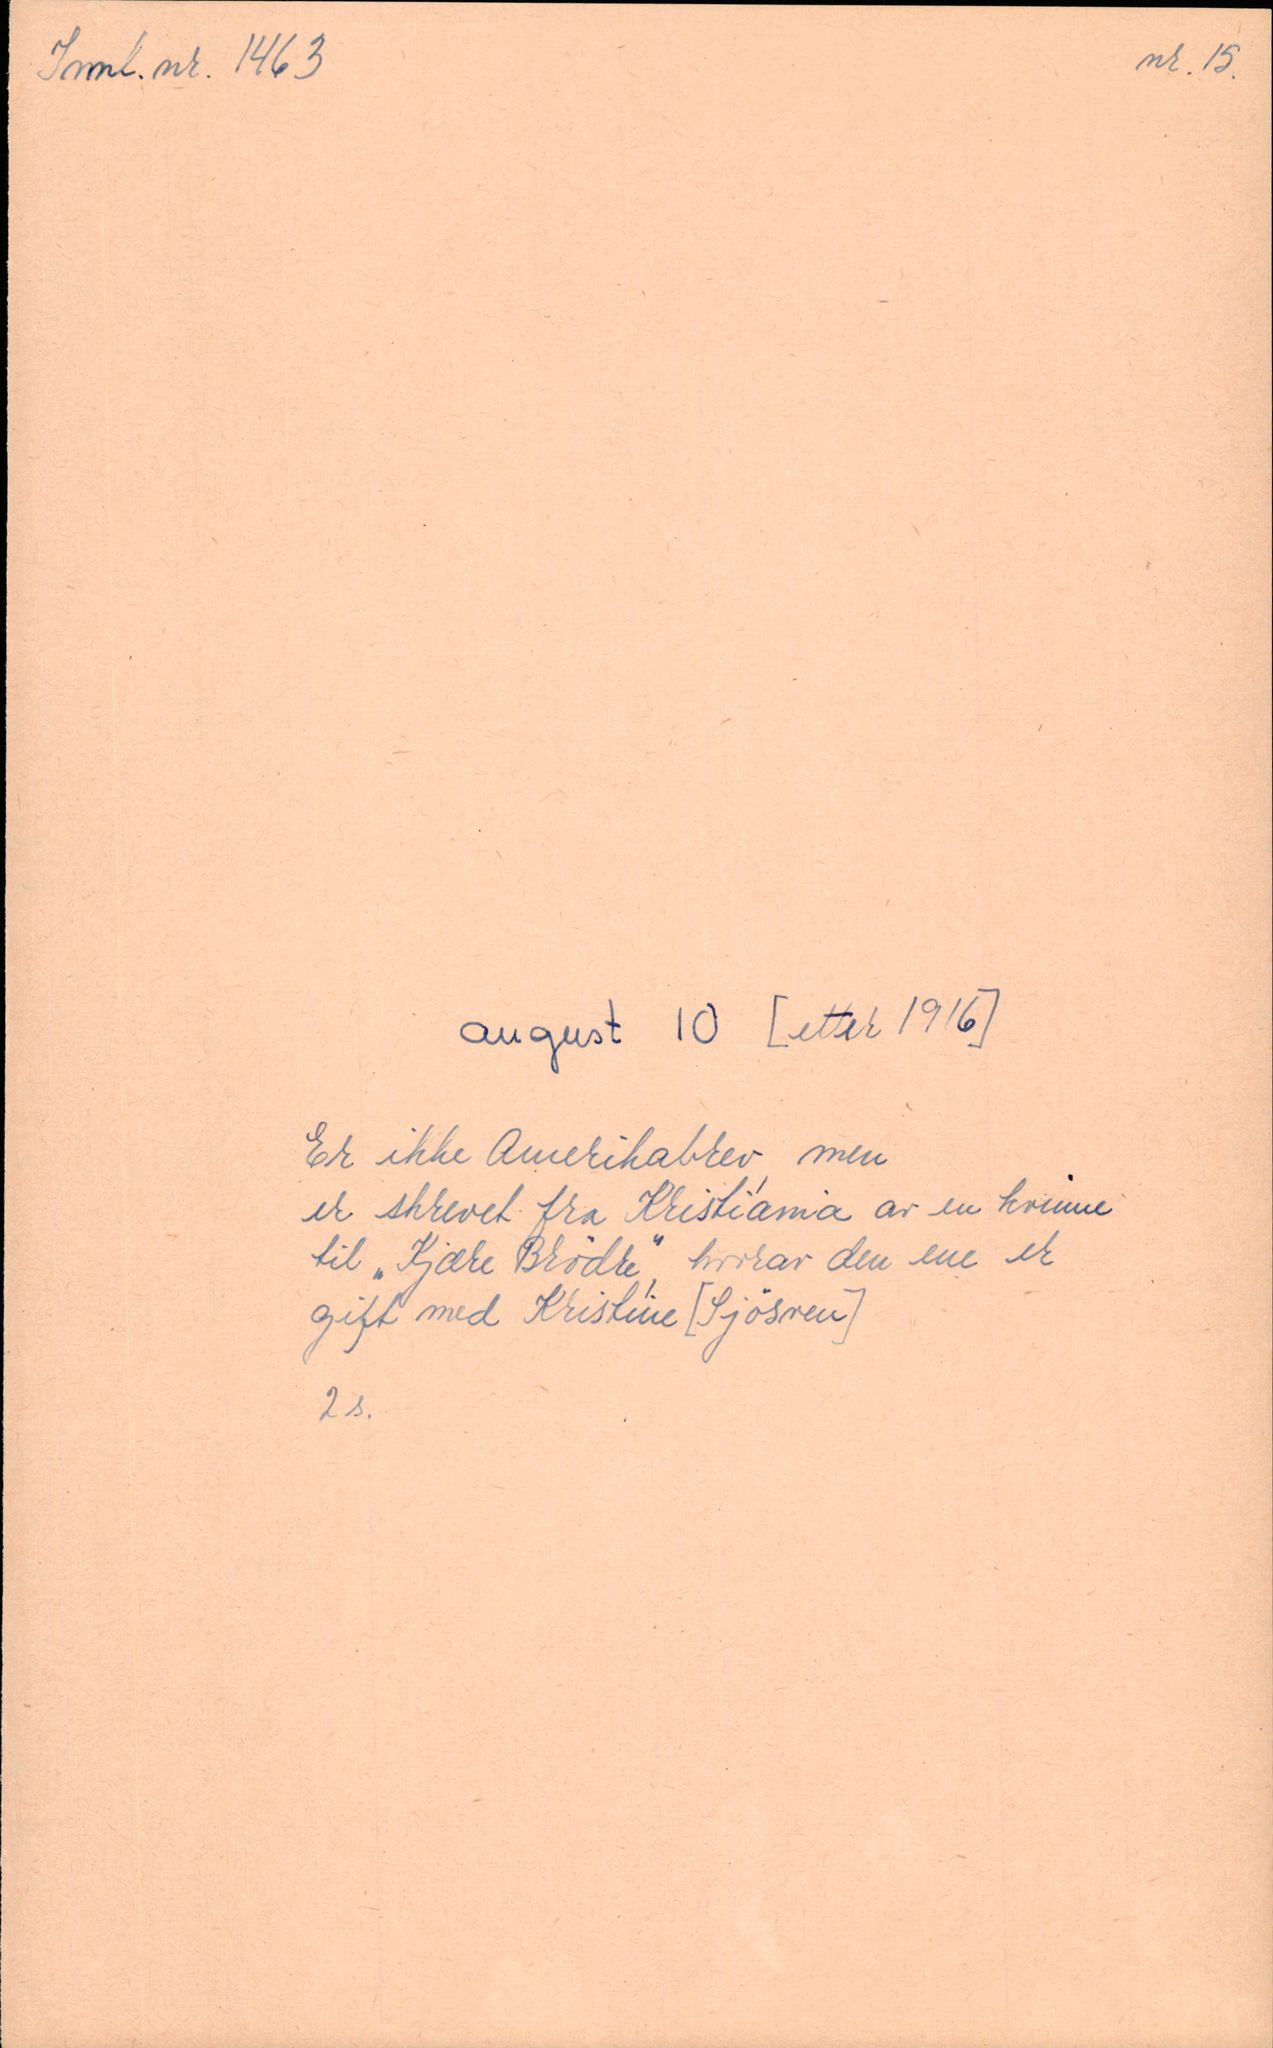 Innl. nr. 1463
nr. 15.
august 10 [etter 1916]
Er ikke Amerikabrev, men
er skrevet fra Kristiania av en kvinne
til „Kjære Brödre", hvorav den ene er
gift med Kristine [Sjösven]
2 s.